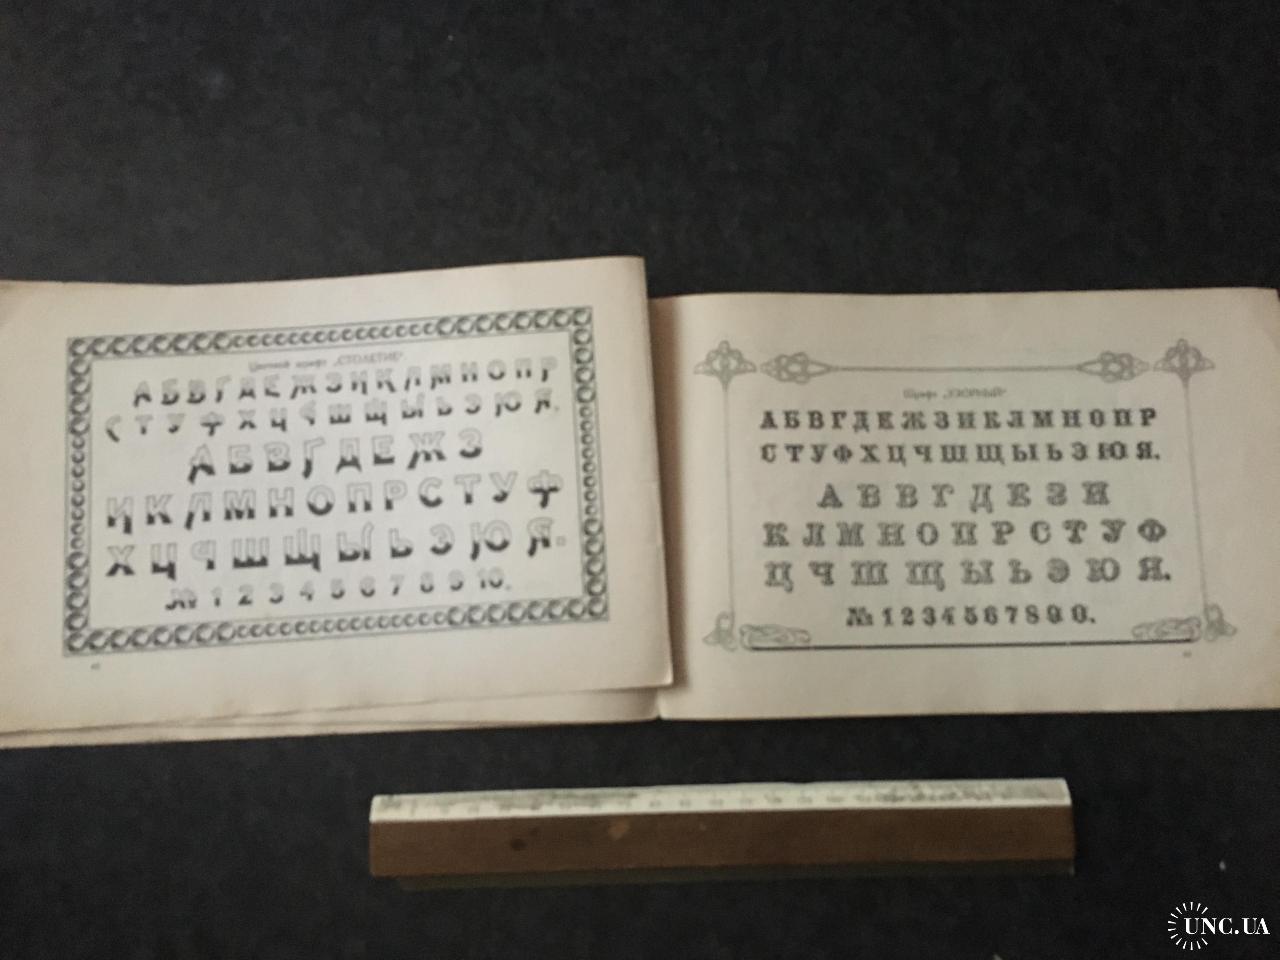 Цветной шрифт „СТОЛЕТИЕ“.
АБВГДЕЖЗИКЛМНОПР
СТУФХЦЧШЩЫЬЭЮЯ.
АБВГДЕЖЗ
ИКЛМНОПРСТУФ
ХЦЧШЩЫЬЭЮЯ.
№ 1 2 3 4 5 6 7 8 9 10.
Шрифт „УЗОРНЫЙ“
АБВГДЕЖЗИКЛМНОПР
СТУФХЦЧШЩЫЬЭЮЯ.
АБВГДЕЗИ
КЛМНОПРСТУФ
ЦЧШЩЫЬЭЮЯ.
№ 1 2 3 4 5 6 7 8 9 0.
UNC.UA